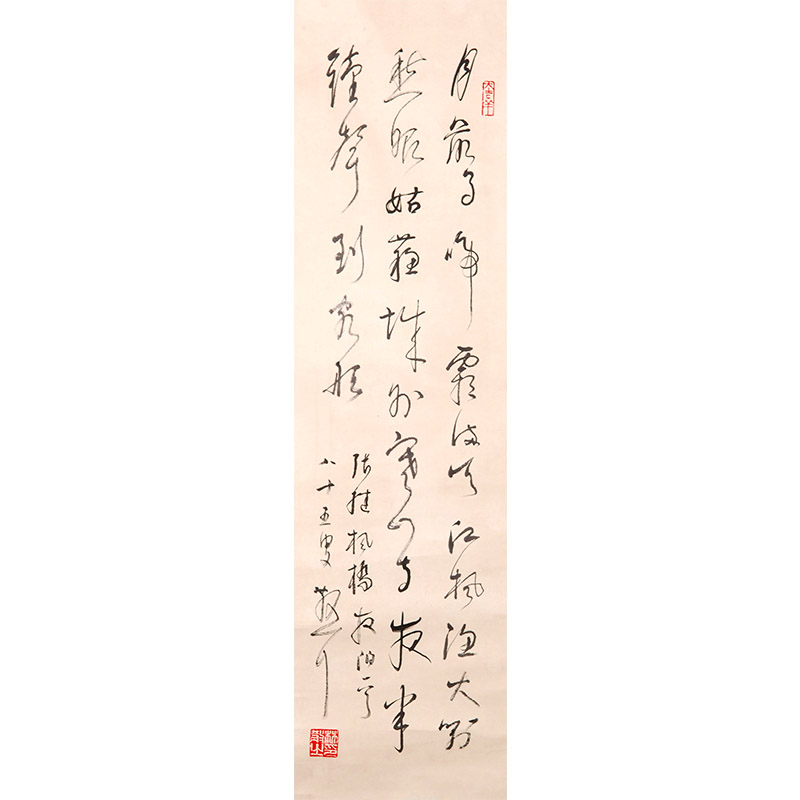 大吉羊
月落烏啼霜滿天江楓漁火對
愁眠姑蘇城外寒山寺夜半
鐘聲到客船
張繼楓橋夜泊
八十五叟散耳